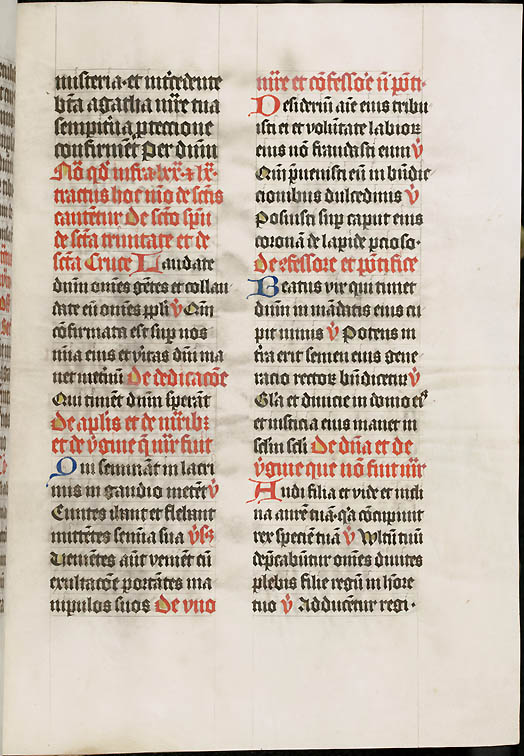 misteria·et intercedente
bt̄a agatha m̄re tua
sempit̄na ꝓtectione
confirment Per dn̄m
Nō qd̄ infra lxx·ꝛ lx·
tractus hoc mō de sctis
cantētur De scto sp̄u
de sct̄a trinitate et de
sct̄a Cruce Laudate
dn̄m om̄es gētes et collau
date eū om̄es ppl̄i v̄ Qm̄
cōfirmata est sup nos
mīa eius et v̄itas dn̄i ma
net inet̄nū De dedicacōe
Qui timēt dn̄m sperāt
De aplis et de m̄ribꝫ
et de v̄gine q̄ m̄r fuit
Qui semināt in lacri
mis in gaudio metēt v̄
Euntes ibant et flebant
mittētes semīa sua v̄s
Venientes aūt venīet cū
exultacōe portātes ma
nipulos suos De vno
m̄re et cōfessoē ⁊ pōti·
Desideriū aīe eius tribu
isti ei et volūtate labioꝝ
eius nō fraudasti eum v̄
Qm̄ p̄uenisti eū in bn̄dic
cionibus dulcedinis v̄
Posuisti sup caput eius
coronā de lapide p̄cioso·
De ꝯfessore et pōtifice
Beatus vir qui timet
dn̄m in mādatis eius cu
pit nimis v̄ Potens in
t̄ra erit semen eius gene
racio rectoꝝ bn̄dicetur v̄
Gl̄a et diuicie in domo eꝰ
et iusticia eius manet in
sc̄lm sc̄li De dn̄a et de
v̄gine que nō fuit m̄r
Audi filia et vide et incli
na aurē tuā q̄a cōcupiuit
rex speciē tuā v̄ Wltū tuū
dep̄cabūtur om̄es diuites
plebis filie regū in hōre
tuo v̄ Adducētur regi·